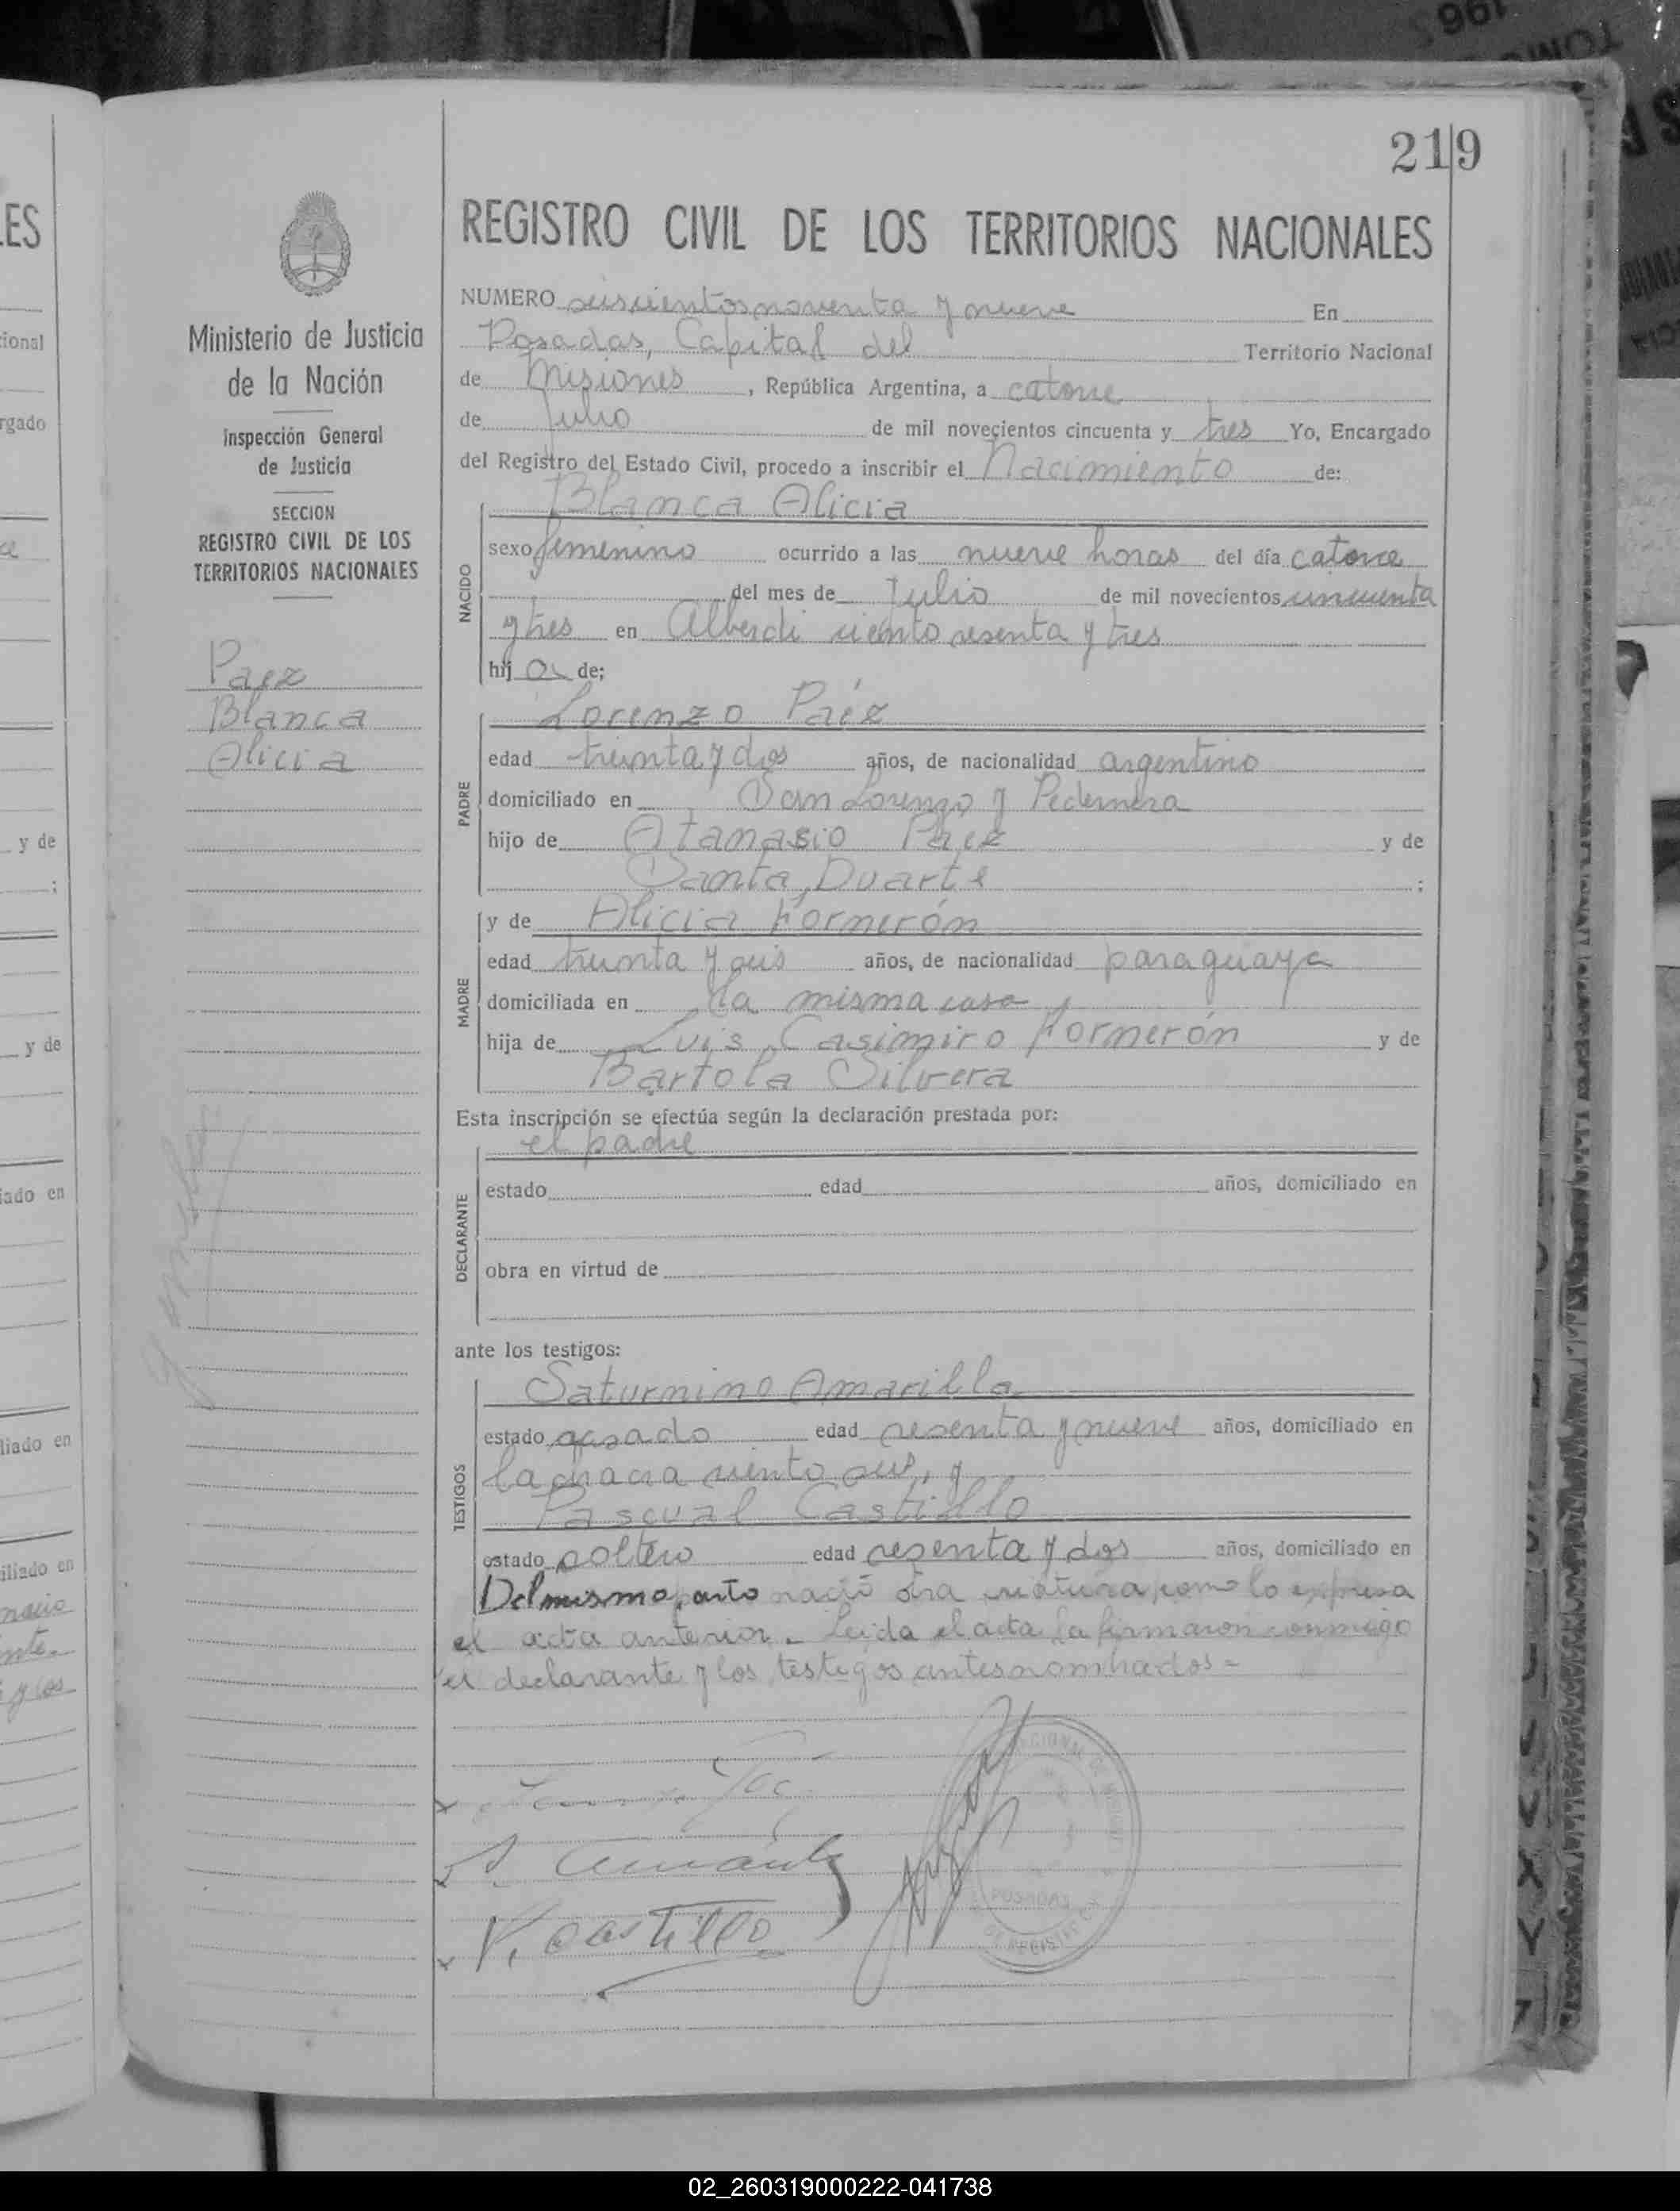 219
REGISTRO CIVIL DE LOS TERRITORIOS NACIONALES
Ministerio de Justicia
de la Nación
Inspección General
de Justicia
SECCION
REGISTRO CIVIL DE LOS
TERRITORIOS NACIONALES
Paez
Blanca
Alicia
NUMERO seiscientos noventa y nueve En
Posadas, Capital del Territorio Nacional
de Misiones, República Argentina, a catorce
de Julio de mil novecientos cincuenta y tres Yo, Encargado
del Registro del Estado Civil, procedo a inscribir el Nacimiento de:
NACIDO
Blanca Alicia
sexo femenino ocurrido a las nueve horas del día catorce
del mes de Julio de mil novecientos cincuenta
y tres en Alberdi ciento sesenta y tres
hij a de;
PADRE
Lorenzo Paéz
edad treinta y dos años, de nacionalidad argentino
domiciliado en San Lorenzo y Pedernera
hijo de Atanasio Paez y de
Santa Duarte ;
MADRE
y de Alicia Fornerón
edad treinta y seis años, de nacionalidad paraguaya
domiciliada en la misma casa
hija de Luis Casimiro Fornerón y de
Bartola Silvera
Esta inscripción se efectúa según la declaración prestada por:
DECLARANTE
el padre
estado edad años, domiciliado en
obra en virtud de
ante los testigos:
TESTIGOS
Saturnino Amarilla
estado casado edad sesenta y nueve años, domiciliado en
la chacra ciento seis, y
Pascual Castillo
estado soltero edad sesenta y dos años, domiciliado en
Del mismo parto nació otra criatura, como lo expresa
el acta anterior. Leida el acta la firmaron conmigo
el declarante y los testigos antes nombrados =
P. Castillo
POSADAS
02_260319000222-041738